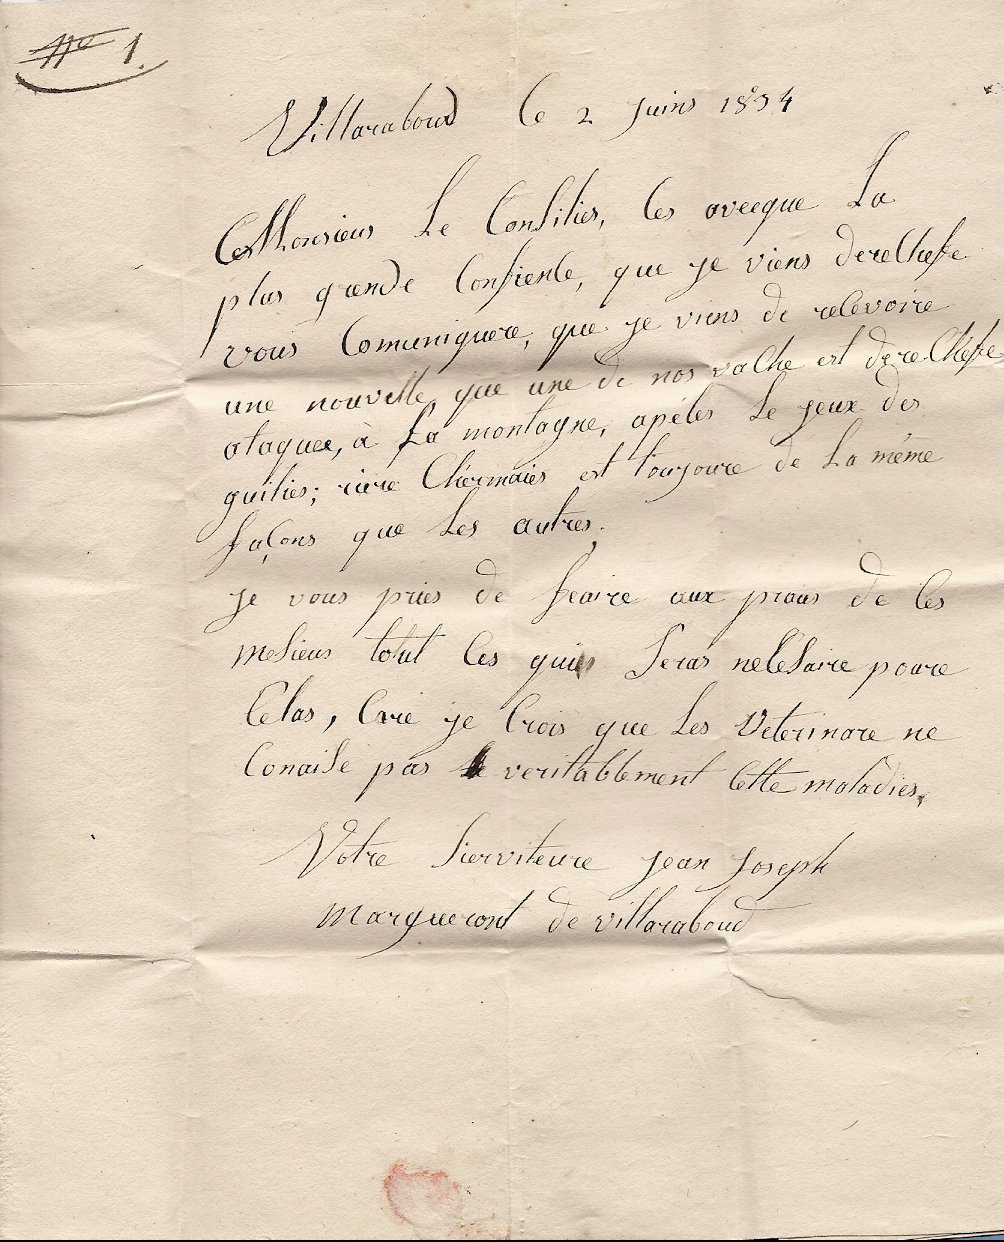 No 1.
Villaraboud le 2 Juins 1834
Monsieur Le Consilier, Ces avecque La
plus grande Confience, que je viens derechefe
vous Comuniquere, que je viens de recevoire
une nouvelle, que une de nos vache est derechefe
ataquee, à La montagne, apélés Le jeux des
guilies; est toujoure de La même
façons que Les autres;
je vous pries de feaire aux praus de ces
mesieus totut Ces quies Seras necesaire poure
Celas, Care je Crois que Les Veterinare ne
Conaise pas veritablement Cette maladies,
Votre Sierviteure jean joseph
Margueront de villaraboud